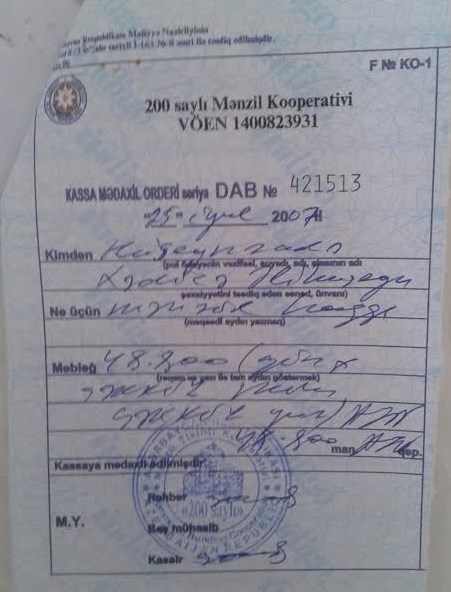 Respublikası Maliyyə Nazirliyinin
tarixli İ-163 № li əmri ilə təsdiq edilmişdir.
F № KO-1
200 saylı Mənzil Kooperativi
VÖEN 1400823931
KASSA MƏDAXİL ORDERİ seriya DAB № 421513
"25" iyul 2007 il
Kimdən Hüseynzadə
(pul ödəyənin vəzifəsi, soyadı, adı, atasının adı
şəxsiyyətini təsdiq edən sənəd, ünvanı)
Nə üçün mənzil haqqı
(məqsədi aydın yazmaq)
Məbləğ 48.800 (qırx
(rəqəm və yazı ilə tam aydın göstərmək)
səkkiz min
səkkiz yüz) AZN
48.800 man AZN qəp.
Kassaya mədaxil edilmişdir.
Rəhbər
«200 saylı»
M.Y.
Baş mühasib
Kassir